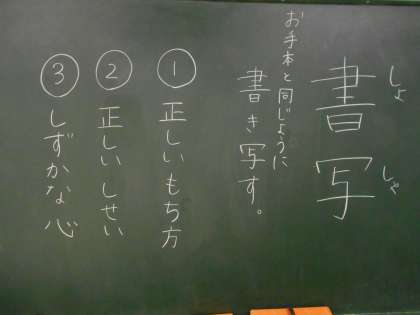 書写
しょしゃ
お手本と同じように
書き写す。
① 正しいもち方
② 正しいしせい
③ しずかな心